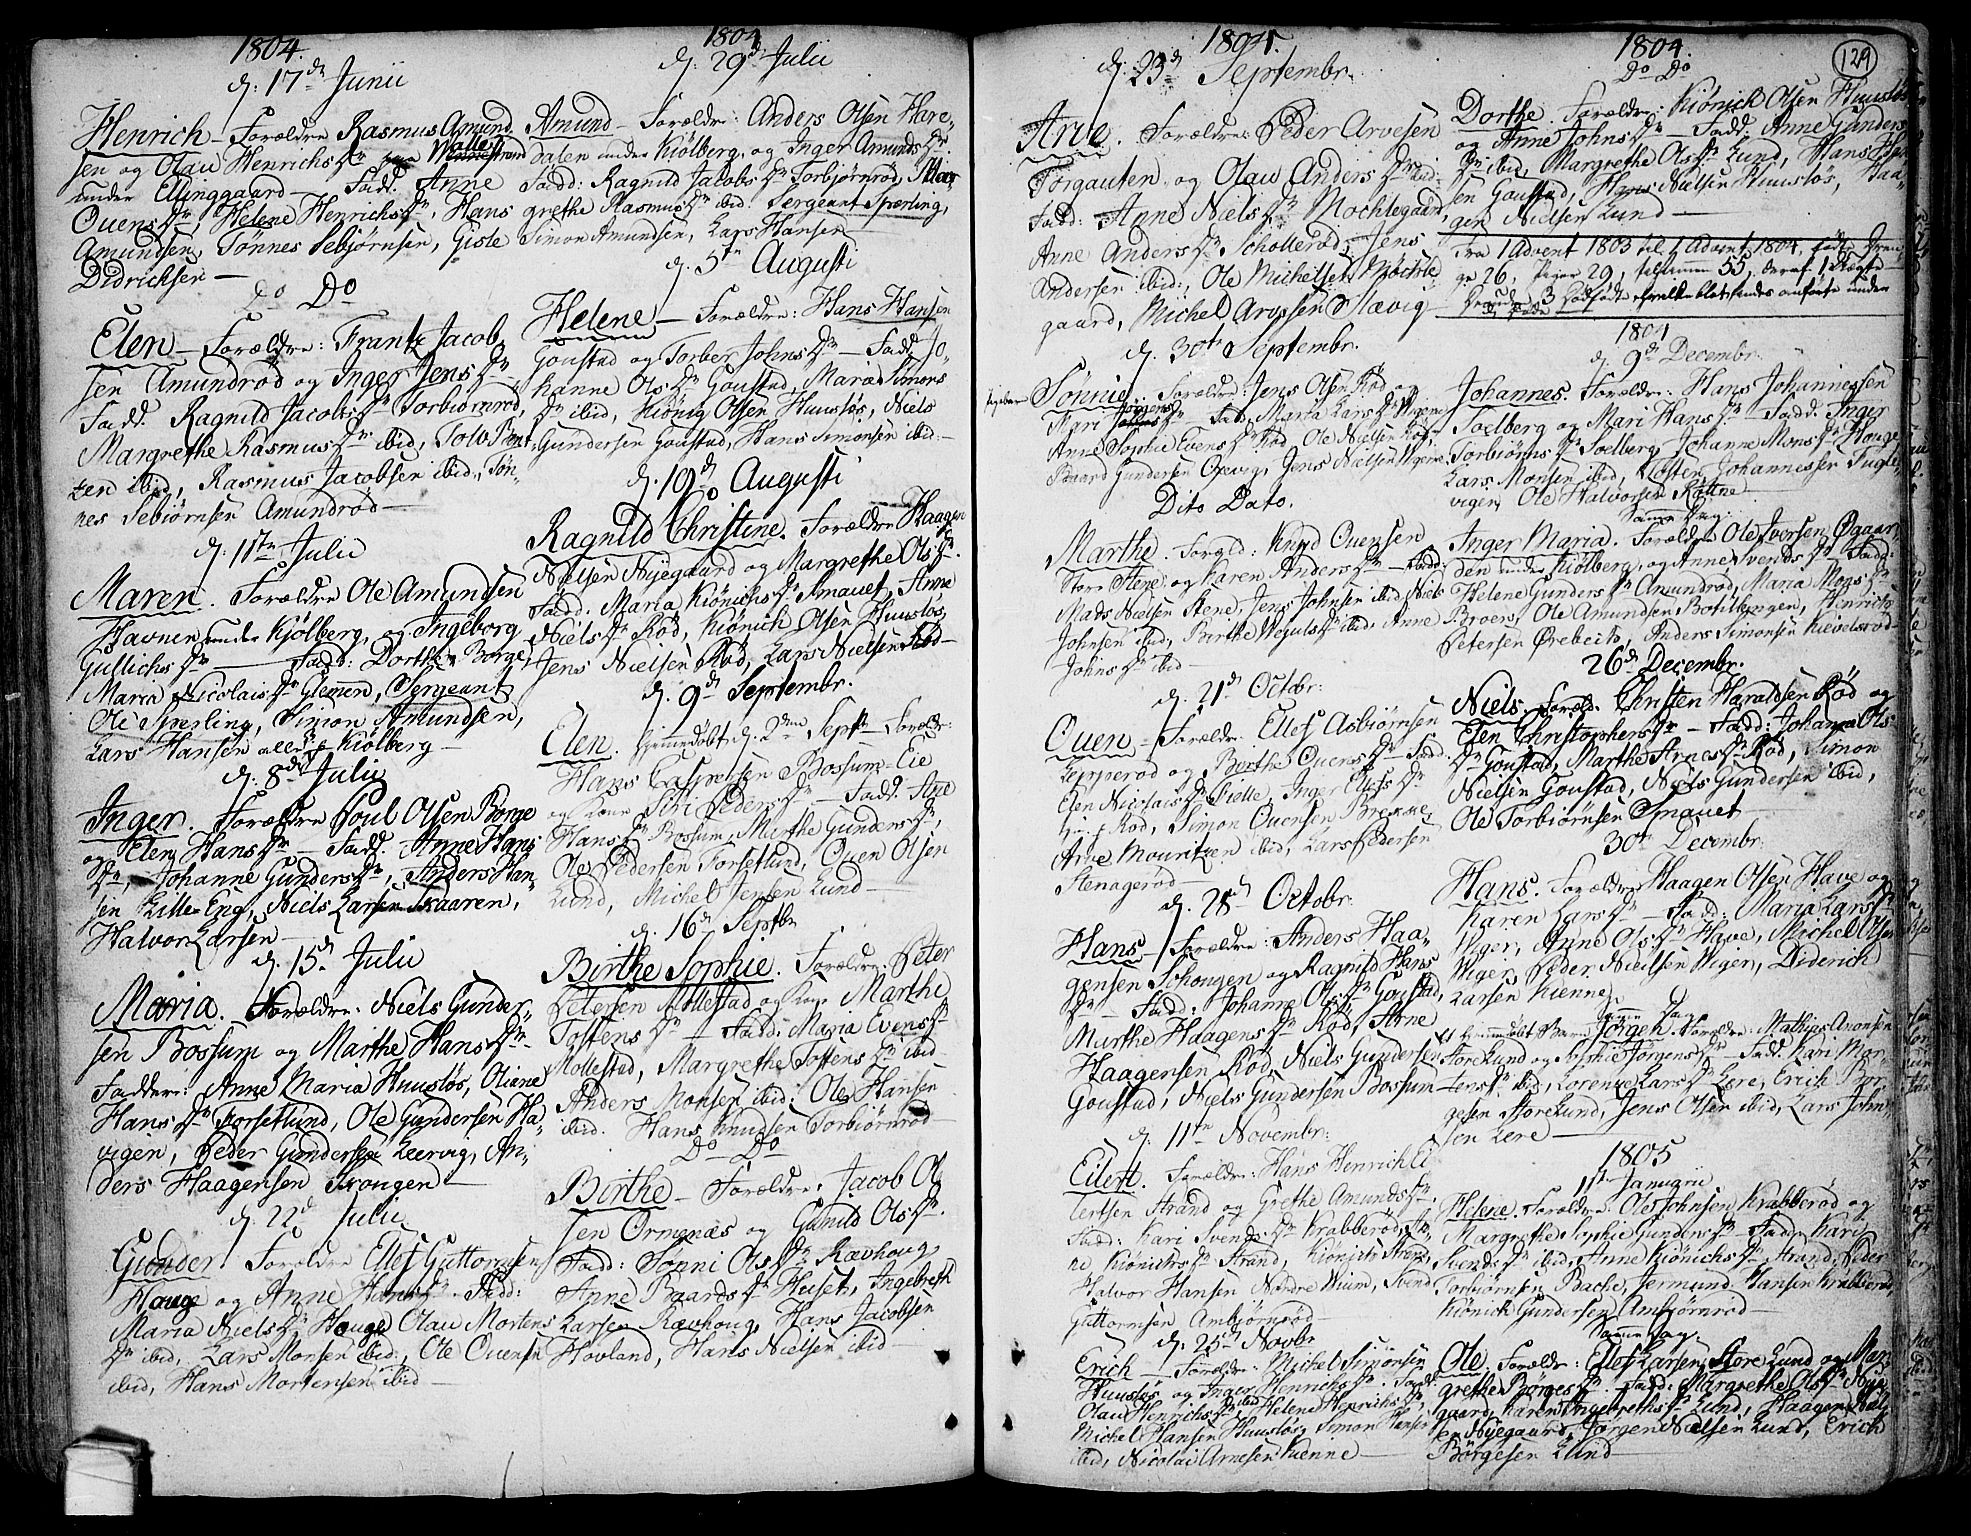 1804.
d. 17de Junii
Henrich – Forældre Rasmus Amund
sen og Olau Henrichs Dr
under Elinggaard – Fadd. Anne
Ouens Dr, Helene Henrichs Dr, Hans
Amundsen, Tønnes Sebjørnsen, Gisle
Didrichsen –
Do Do
Elen – Forældre: Frantz Jacob
sen Amundrød og Inger Jens Dr
Fadd. Ragnild Jacobs Dr Torbiørnrød,
Margrethe Rasmus Dr ibid,
ibid, Rasmus Jacobsen ibid, Tøn-
nes Sebiørnsen Amundrød –
d. 11te Julii
Maren. Forældre Ole Amundsen
Havnen under Kjølberg, og Ingeborg
Gullichs Dr – Fadd: Dorthe Borge,
Maria Nicolais Dr Glemen, Sergeant
Ole Sperling, Simon Amundsen,
Lars Hansen alle p Kiølberg –
d. 8de Julii
Inger. Forældre Poul Olsen Borge
og Elen Hans Dr – Fadd. Anne Hans
Dr, Johanne Gunders Dr, Anders Han-
sen Lille-Eng, Niels Larsen Skaaren,
Halvor Larsen –
d. 15de Julii
Maria. Forældre: Niels Gunder-
sen Bossum og Marthe Hans Dr.
Faddere: Anne Maria Huusløs, Oliane
Hans Dr Torsetlund, Ole Gundersen Ha-
vigen, Peder Gundersen Leervig, An-
ders Haagensen Skougen –
d. 22d Julii
Gunder Forældre Ellef Guttormsen
Houge og Anne Hans Dr. Fadd:
Maria Niels Dr Houge, Olau Mortens
Dr ibid, Lars Monsen ibid, Ole Ouensen
ibid, Hans Mortensen ibid –
1804
d. 29d Julii
Amund – Forældre: Anders Olsen Hare-
dalen under Kiølberg, og Inger Amunds Dr.
Fadd: Ragnild Jacobs Dr Torbjørnrød, Mar
grethe Rasmus Dr ibid. Sergeant Sperling,
Simon Amundsen, Lars Hansen –
d. 5te Augusti
Helene – Forældre: Hans Hansen
Goustad og Torber Johns Dr – Fadd Jo-
hanne Ols Dr Goustad, Maria Simons
Dr ibid, Kiønig Olsen Huusløs, Niels
Gundersen Goustad, Hans Simonsen ibid –
d. 19d Augusti
Ragnild Christine. Forældre Haagen
Nielsen Nyegaard og Margrethe Ols Dr.
Fadd: Maria Kiønichs Dr Smauet, Anne
Niels Dr Rød, Kiønich Olsen Huusløs,
Jens Nielsen Rød, Lars Nielsen Rød –
d. 9d Septembr.
Elen. Hjemmedøbt d. 2den Sept – Forældre:
Hans Caspersen Bossum-Eie
og Kone Siri Peders Dr – Fadd. Anne
Hans Dr Bossum, Marthe Gunders Dr,
Ole Pedersen Torsetlund, Ouen Olsen
Lund, Michel Jensen Lund –
d. 16de Septbr
Birthe Sophie. Forældre: Peter
Petersen Mollestad og Kone Marthe
Tostens Dr – Fadd: Maria Evens Dr
Mollestad, Margrethe Tostens Dr ibid
Anders Monsen ibid: Ole Hansen
ibid. Hans Knudsen Torbiørnrød –
Do Do
Birthe – Forældre: Jacob Ol
sen Ornenæs og Gunild Ols Dr.
Fadd: Sønni Ols Dr Rævhoug
Anne Baards Dr Huset, Ingebreth
Larsen Rævhoug, Hans Jacobsen
Hovland, Hans Nielsen ibid –
1804.
d. 23d Septembr.
Arve. Forældre: Peder Arvesen
Torgauten og Olau Anders Dr ibid.
Fadd: Anne Niels Dr Mochlegaard,
Anne Anders Dr Schollerød, Jens
Andersen ibid:, Ole Michelsen Møchle
gaard, Michel Arvesen Slævig
d. 30te Septembr.
Sønnie. Forældre: Jens Olsen Rød og
Kyri Jørgens Dr – Fadd. Marta Lars Dr
Anne Sophie Evens Dr Rød, Ole Nielsen
Baard Gundersen Oxevig, Jens Nielsen
Dito Dato.
Marthe. Foræld: Knud Ouensen
Store Stene og Karen Anders Dr – Fadd:
Mads Nielsen Stene, Jens Johnsen ibid, Niels
Johnsen ibid, Birthe ibid, Anne
Johns Dr ibid –
d. 21de Octobr:
Ouen – Forældre: Ellef Asbiørnsen
Kepperød og Berthe Ouens Dr – Fadd.
Elen Nicolais Dr Pielle, Inger Ellefs Dr
Rød, Simon Ouensen Brekke,
Arve Mouritzen ibid, Lars Pedersen
Stenagerød –
d. 28de Octobr:
Hans – Forældre: Anders Haa-
gensen Schougen og Ragnild Hans
Dr – Fadd: Johanne Ols Dr Goustad,
Marthe Haagens Dr Rød, Arne
Haagensen Rød, Niels Gundersen
Goustad, Niels Gundersen Bossum –
d. 11te Novembr:
Eilert. Forældre: Hans Henrich Ei
lertsen Strand og Grethe Amunds Dr.
Fadd: Kari Svends Dr Krabberød, An-
ne Kiønichs Dr Strand, Kiønich Strand,
Halvor Hansen Nordre Wiiim, Svend
Guttormsen Ambjørnrød –
d. 25de Novbr
Erich – Forældre: Michel Simonsen
Huusløs og Inger Henrichs Dr. Fadd
Olau Henrichs Dr ibid Helene Henrichs Dr,
Michel Hansen Huusløs, Simon Hansen
ibid, Nicolai Arnesen Kienne –
1804.
Do Do
129
Dorthe. Forældre: Kiønich Olsen Huusløs
og Anne Johns Dr – Fadd: Anne Gunders
Dr ibid, Margrethe Ols Dr Lund, Hans Han
sen Goustad, Hans Nielsen Huusløs, Haa-
gen Nielsen Lund –
Fra 1 Advent 1803 til 1 Advent 1804, fødte Dren
ge 26, Piger 29, tilsammen 55, deraf 1 Uægte –
3 Dødfødte
1804
d. 9de Decembr.
Johannes. Forældre: Hans Johannessen
Soelberg og Mari Hans Dr – Fadd: Inger
Torbiørns Dr Soelberg, Johanne Mons Dr Houge,
Lars Monsen ibid, Tosten Johannessen Fugle
vigen, Ole Halvorsen Rattne –
Samme Dag:
Inger Maria. Forældre Ole Iversen Øgaar
den under Kiølberg, og Anne Svends Dr – Fadd:
Helene Gunders Dr Amundrød, Maria Mons Dr
Broen, Ole Amundsen Botilbogen, Henrich
Petersen Ørebeck, Anders Simonsen Kieselsrød –
26d Decembr.
Niels. Foræld. Christen Haraldsen Rød og
Elen Christophers Dr – Fadd: Johanne Ols
Dr Goustad, Marthe Arnes Dr Rød, Simon
Nielsen Goustad, Niels Gundersen ibid,
Ole Torbiørnsen Smauet –
30te Decembr:
Hans. Forældre Haagen Olsen Have og
Karen Lars Dr – Fadd: Maria Lars Dr
Wiger, Anne Ols Dr Have, Michel Olsen
Wiger, Peder Nielsen Wiger, Diderich
Larsen Kienne –
Samme Dag
et hjemmedøbt Barn Jørgen. Forældre: Mathias Aronsen
Storelund og Sophie Jørgens Dr – Fadd. Kari Mor-
tens Dr ibid, Lorentze Lars Dr Lere, Erich Bør-
gesen Storelund, Jens Olsen ibid, Lars John
sen Lere –
1805
1ste Januarii
Helene. Forældre: Ole Johnsen Krabberød og
Margrethe Sophie Gunders Dr – Fadd: Kari
Svends Dr ibid, Anne Kiønichs Dr Strand, Peder
Torbiørnsen Bache, Jermund Hansen Krabberød,
Kiønich Gundersen Ambjørnrød –
Samme Dag:
Ole. Forældre: Ellef Larsen Store Lund og Mar
grethe Børges Dr. Fadd: Margrethe Ols Dr Nye
gaard, Karen Ingebreths Dr Lund, Haagen Niel
sen Nyegaard, Jørgen Nielsen Lund, Erich
Børgesen Lund